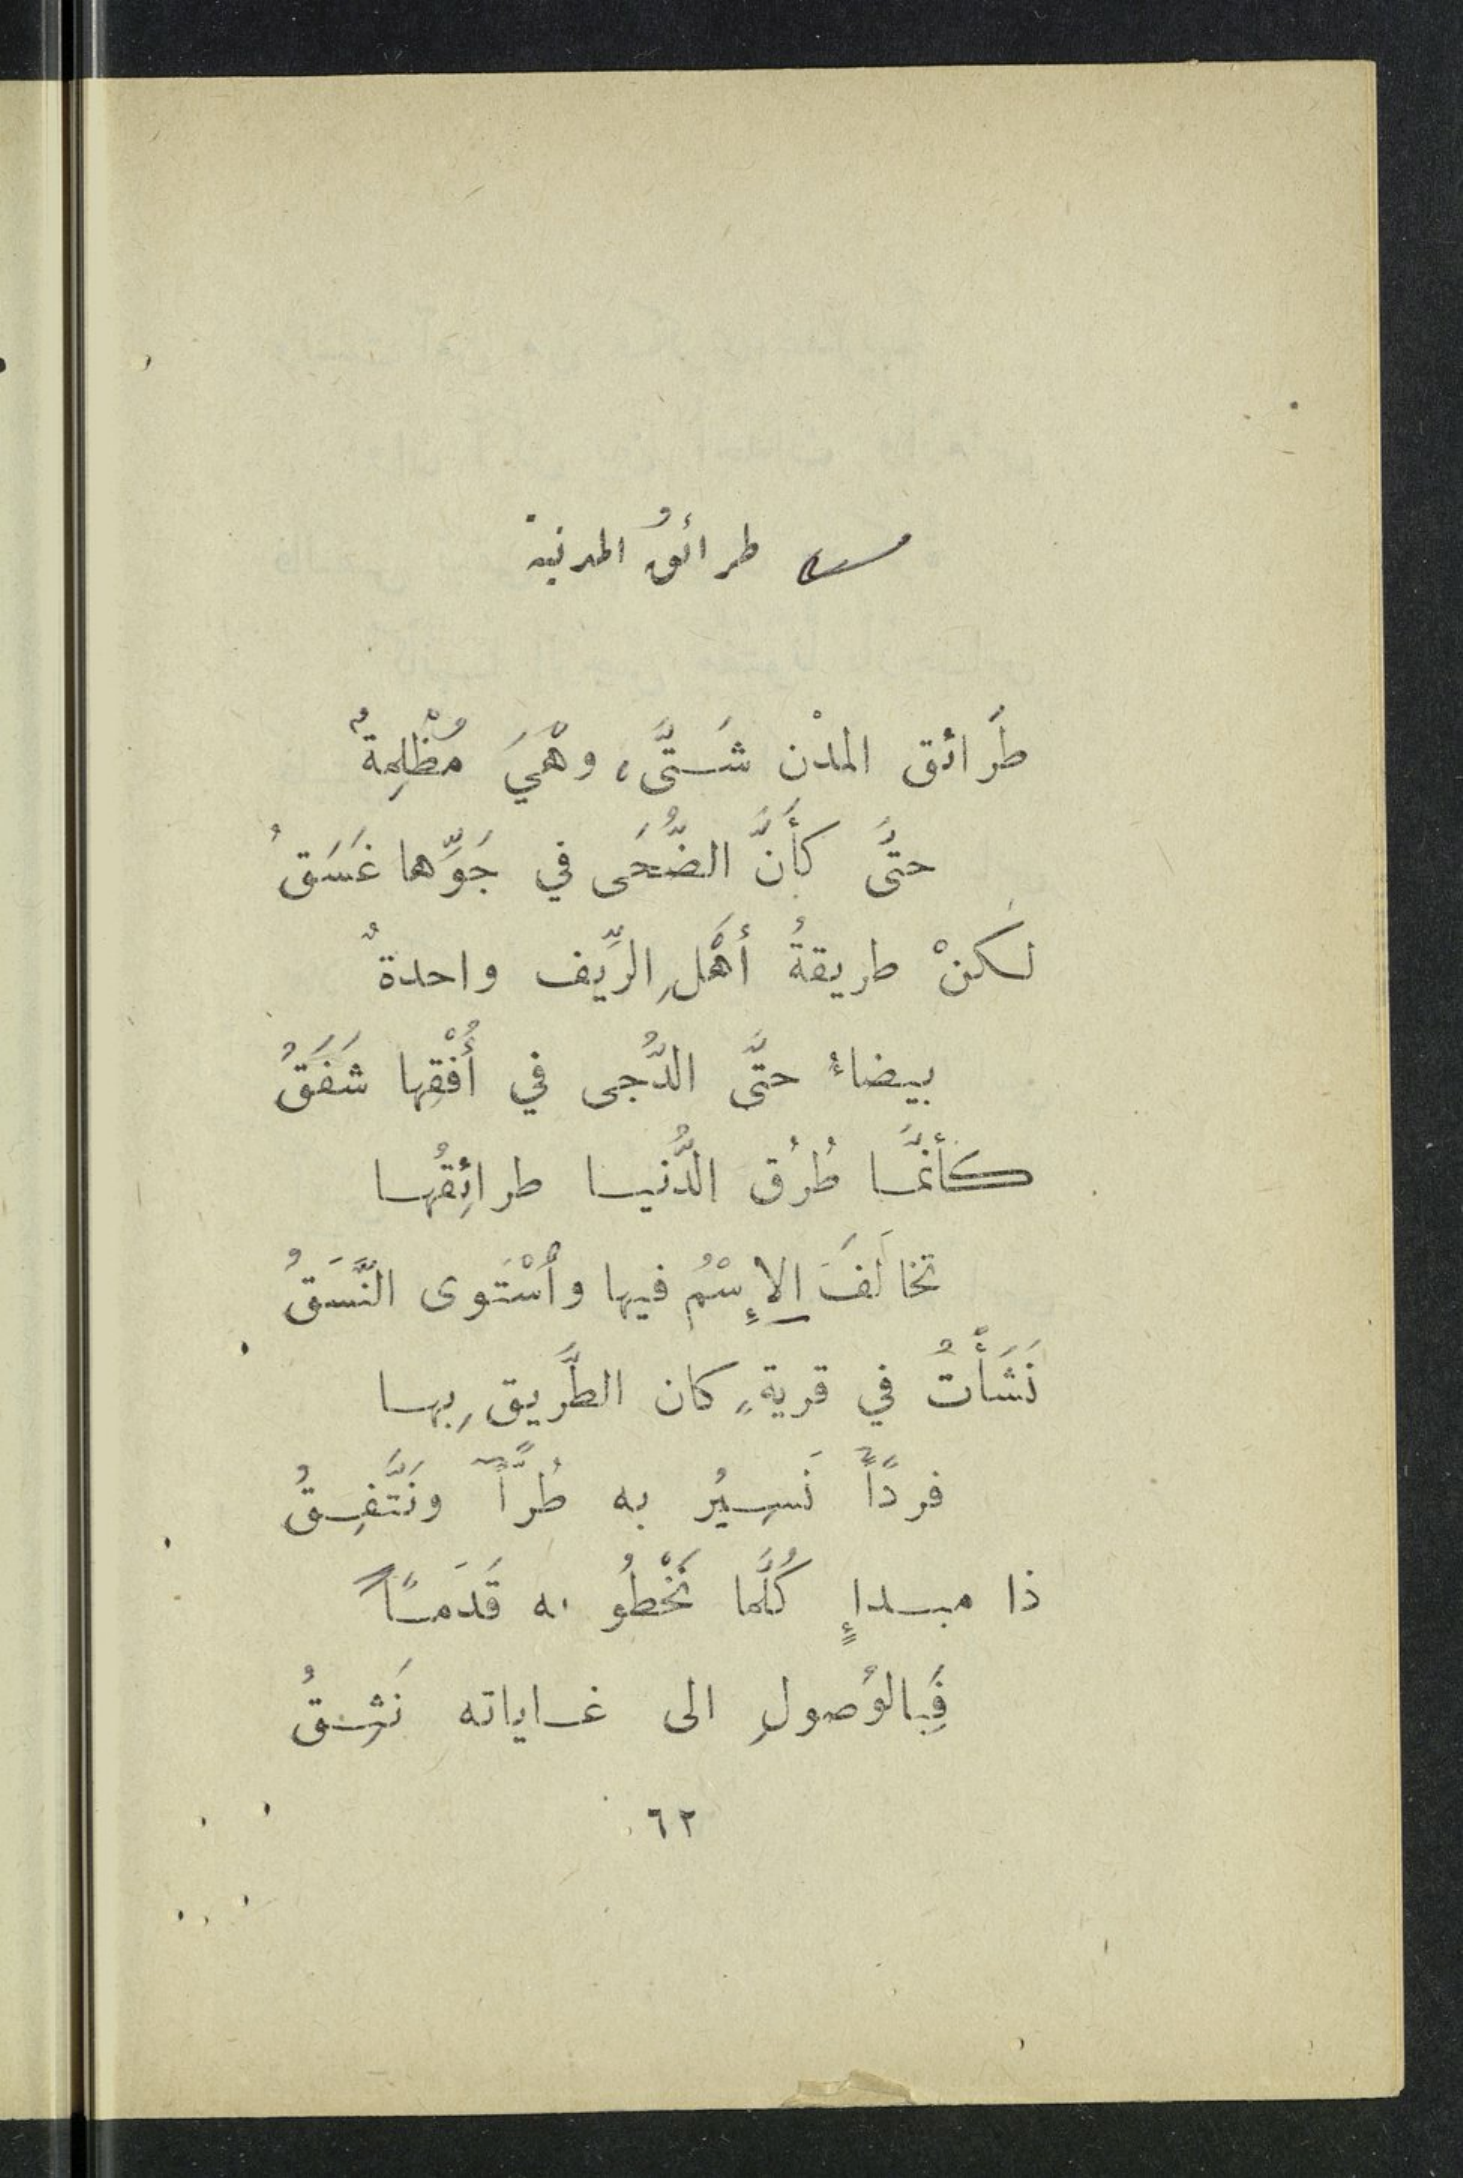 طرائقُ المدنية
طَرائق المدْن شَتَّى، وهْيَ مُظْلِمةٌ
حتَّى كأَنَّ الضُّحَى في جَوِّها غَسَقُ
لكنْ طريقةُ أهْلِ الرِّيف واحدةٌ
بيضاءُ حتَّى الدُّجى في أُفْقِها شَفَقُ
كأنَّما طُرُق الدُّنيا طرائِقُها
تخالَفَ الإِسْمُ فيها واُسْتَوى النَّسَقُ
نَشَأْتُ في قريةٍ كان الطَّريق بِها
فردًاً نَسِيْرُ به طُرَّاً ونَتَّفِقُ
ذا مبدإٍ كُلَّما نَخْطُو به قَدَماً
فَبِالوُصولِ الى غاياته نَثِقُ
٦٢